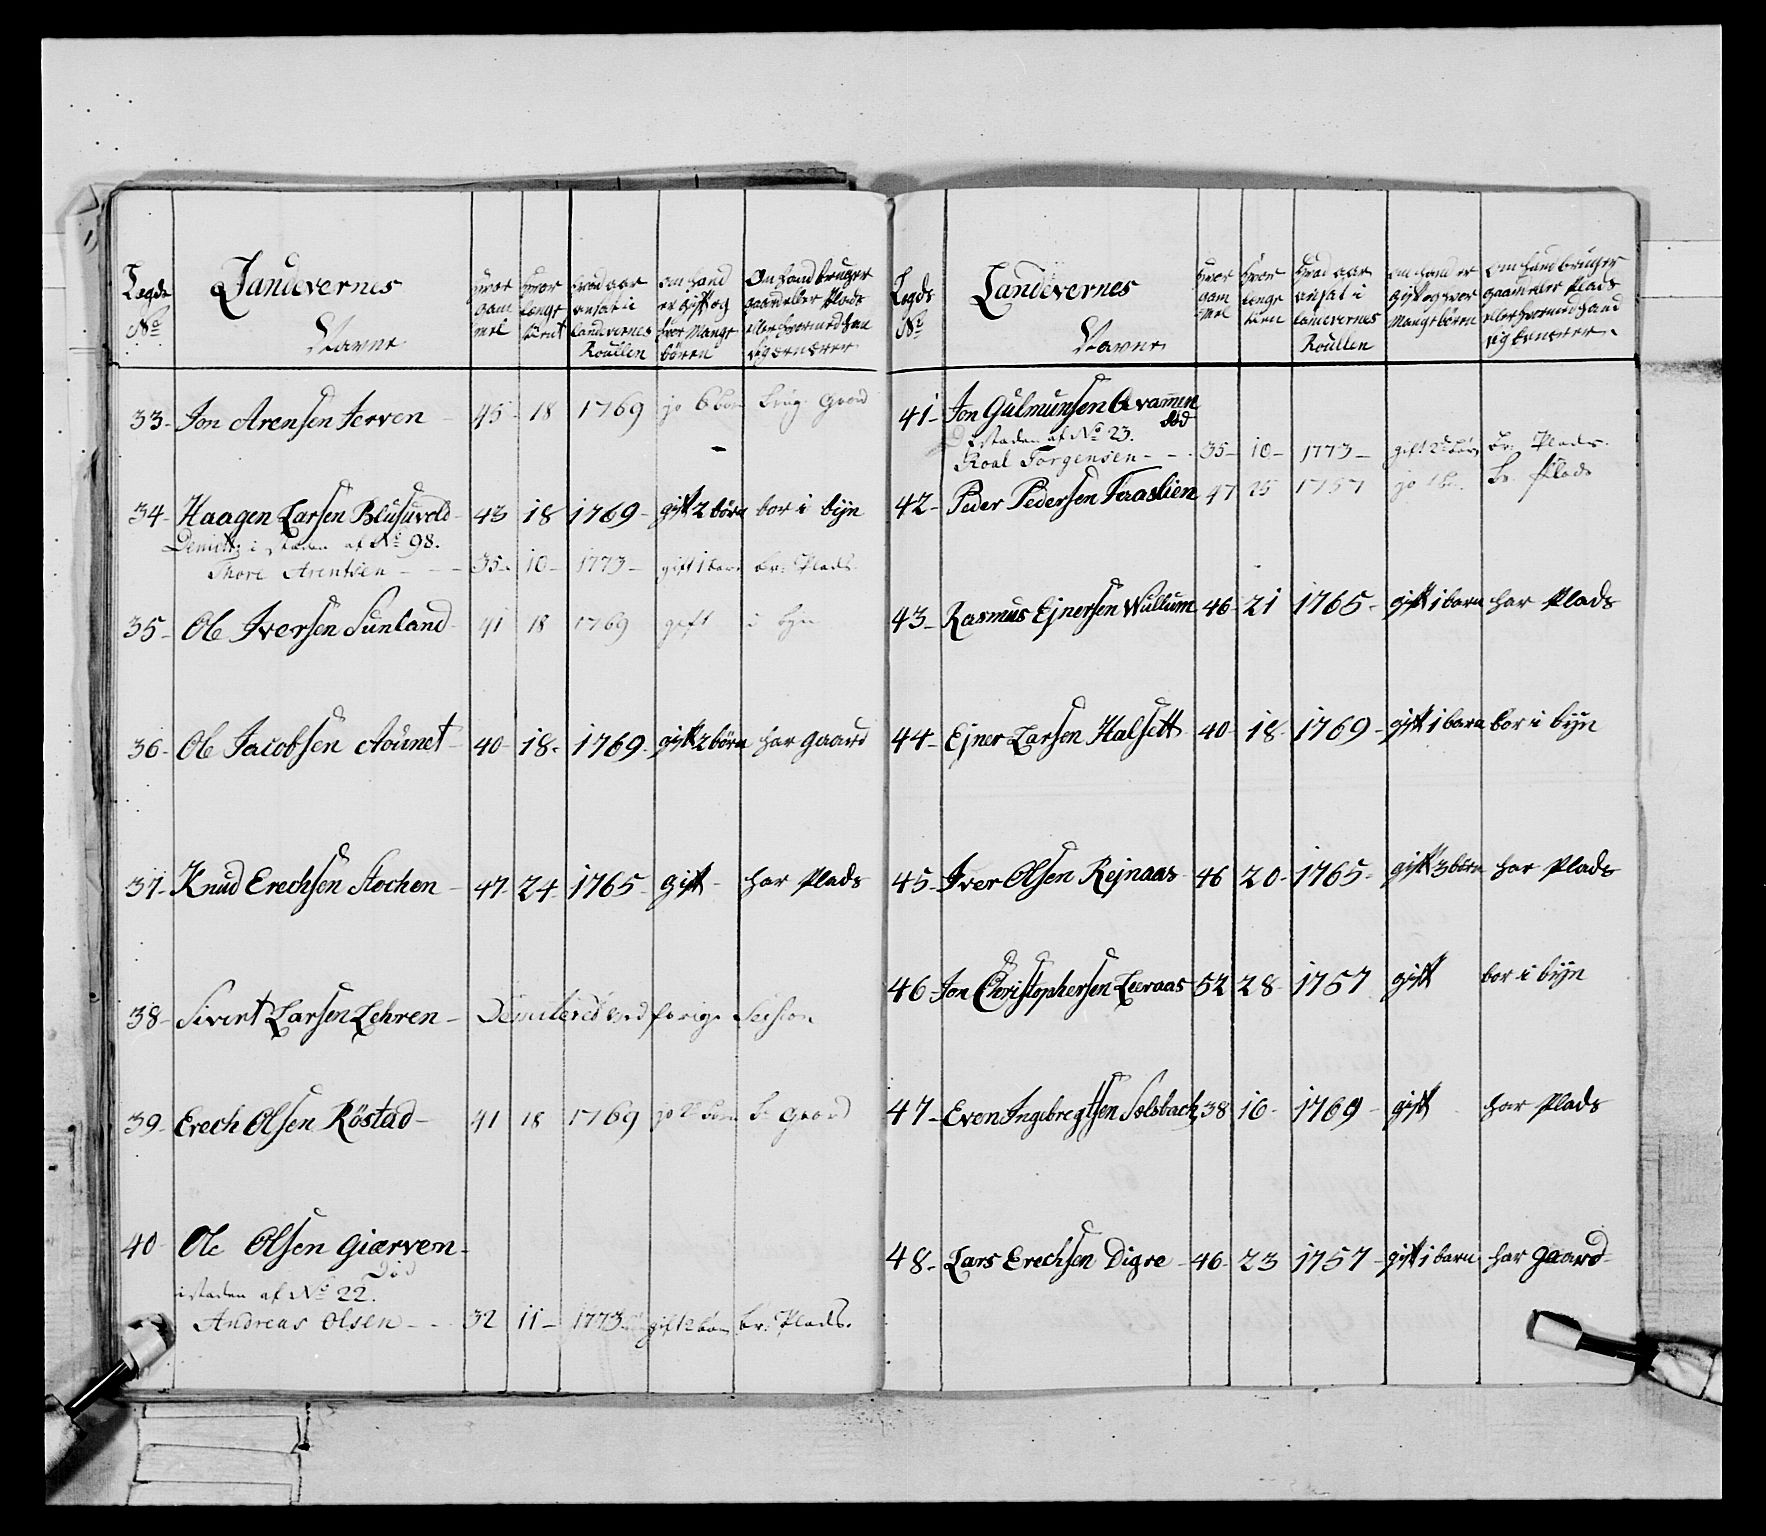 Legds No
Landevernes Navne
Hvor gam mel
Hvor længe tient
Hvad aar ansat i Landvernes Roullen
Om hand er gift og hvor Mange börn
Om hand bruger gaard eller Plads eller hvormed han sig ernærer
33- Jon Arensen Jerven - 45- 18 1769 ja 6 bör brug. Gaard
34- Haagen Larsen Blusuvold- 43 18 1769- gift 2 börn bor i bÿn
i staden af No 98.
Thore Arentsen - - - 35- 10- 1773- gift 1 barn br: Plads.
35- Ole Iversen Sunland- 41 18 1769 gift i byn
36- Ole Jacobsen Aounet- 40- 18- 1769- gift 2 börn har gaard
37- Knud Erechsen Stochen - 47- 24- 1765- gift- har Plads
38- Sivert Larsen Lehren- Demitered ved forrige Session
39- Erech Olsen Röstad- 41 18 1769 ja 2 börn b. Gaard
40- Ole Olsen Giærven-
Död
i staden af No 22.
Andreas Olsen - - - 32 11- 1773- gift 2 börn br: Plads.
Legds No
Landevernes Navne
Hvor gam mel
Hvor længe tien
Hvad aar ansat i Landevernes Roullen
om hand er gift og hvor Mange börn
om hand bruger gaard eller Plads eller hvormed hand sig ernærer.
41- Jon Gulmunsen Qvammen
död
i staden af No 23.
Roal Torgensen - - - 35- 10- 1773- gift 2 börn br: Plads.
42- Peder Pedersen Foraslien 47 25 1757 ja 1 b. br. Plads
43- Rasmus Ejnersen Wullum 46- 21 1765- gift 1 barn har Plads
44- Ejner Larsen Halsett 40- 18- 1769- gift 1 barn bor i bÿn
45- Iver Olsen Rejnaas 46 20- 1765- gift 3 börn har Plads
46- Jon Christophersen Leeraas 52 28- 1757 gift bor i bÿn
47- Even Ingebregtsen Solsbach 38 16- 1769- gift har Plads
48- Lars Erechsen Digre - 46- 23 1757- gift 1 barn har gaard-